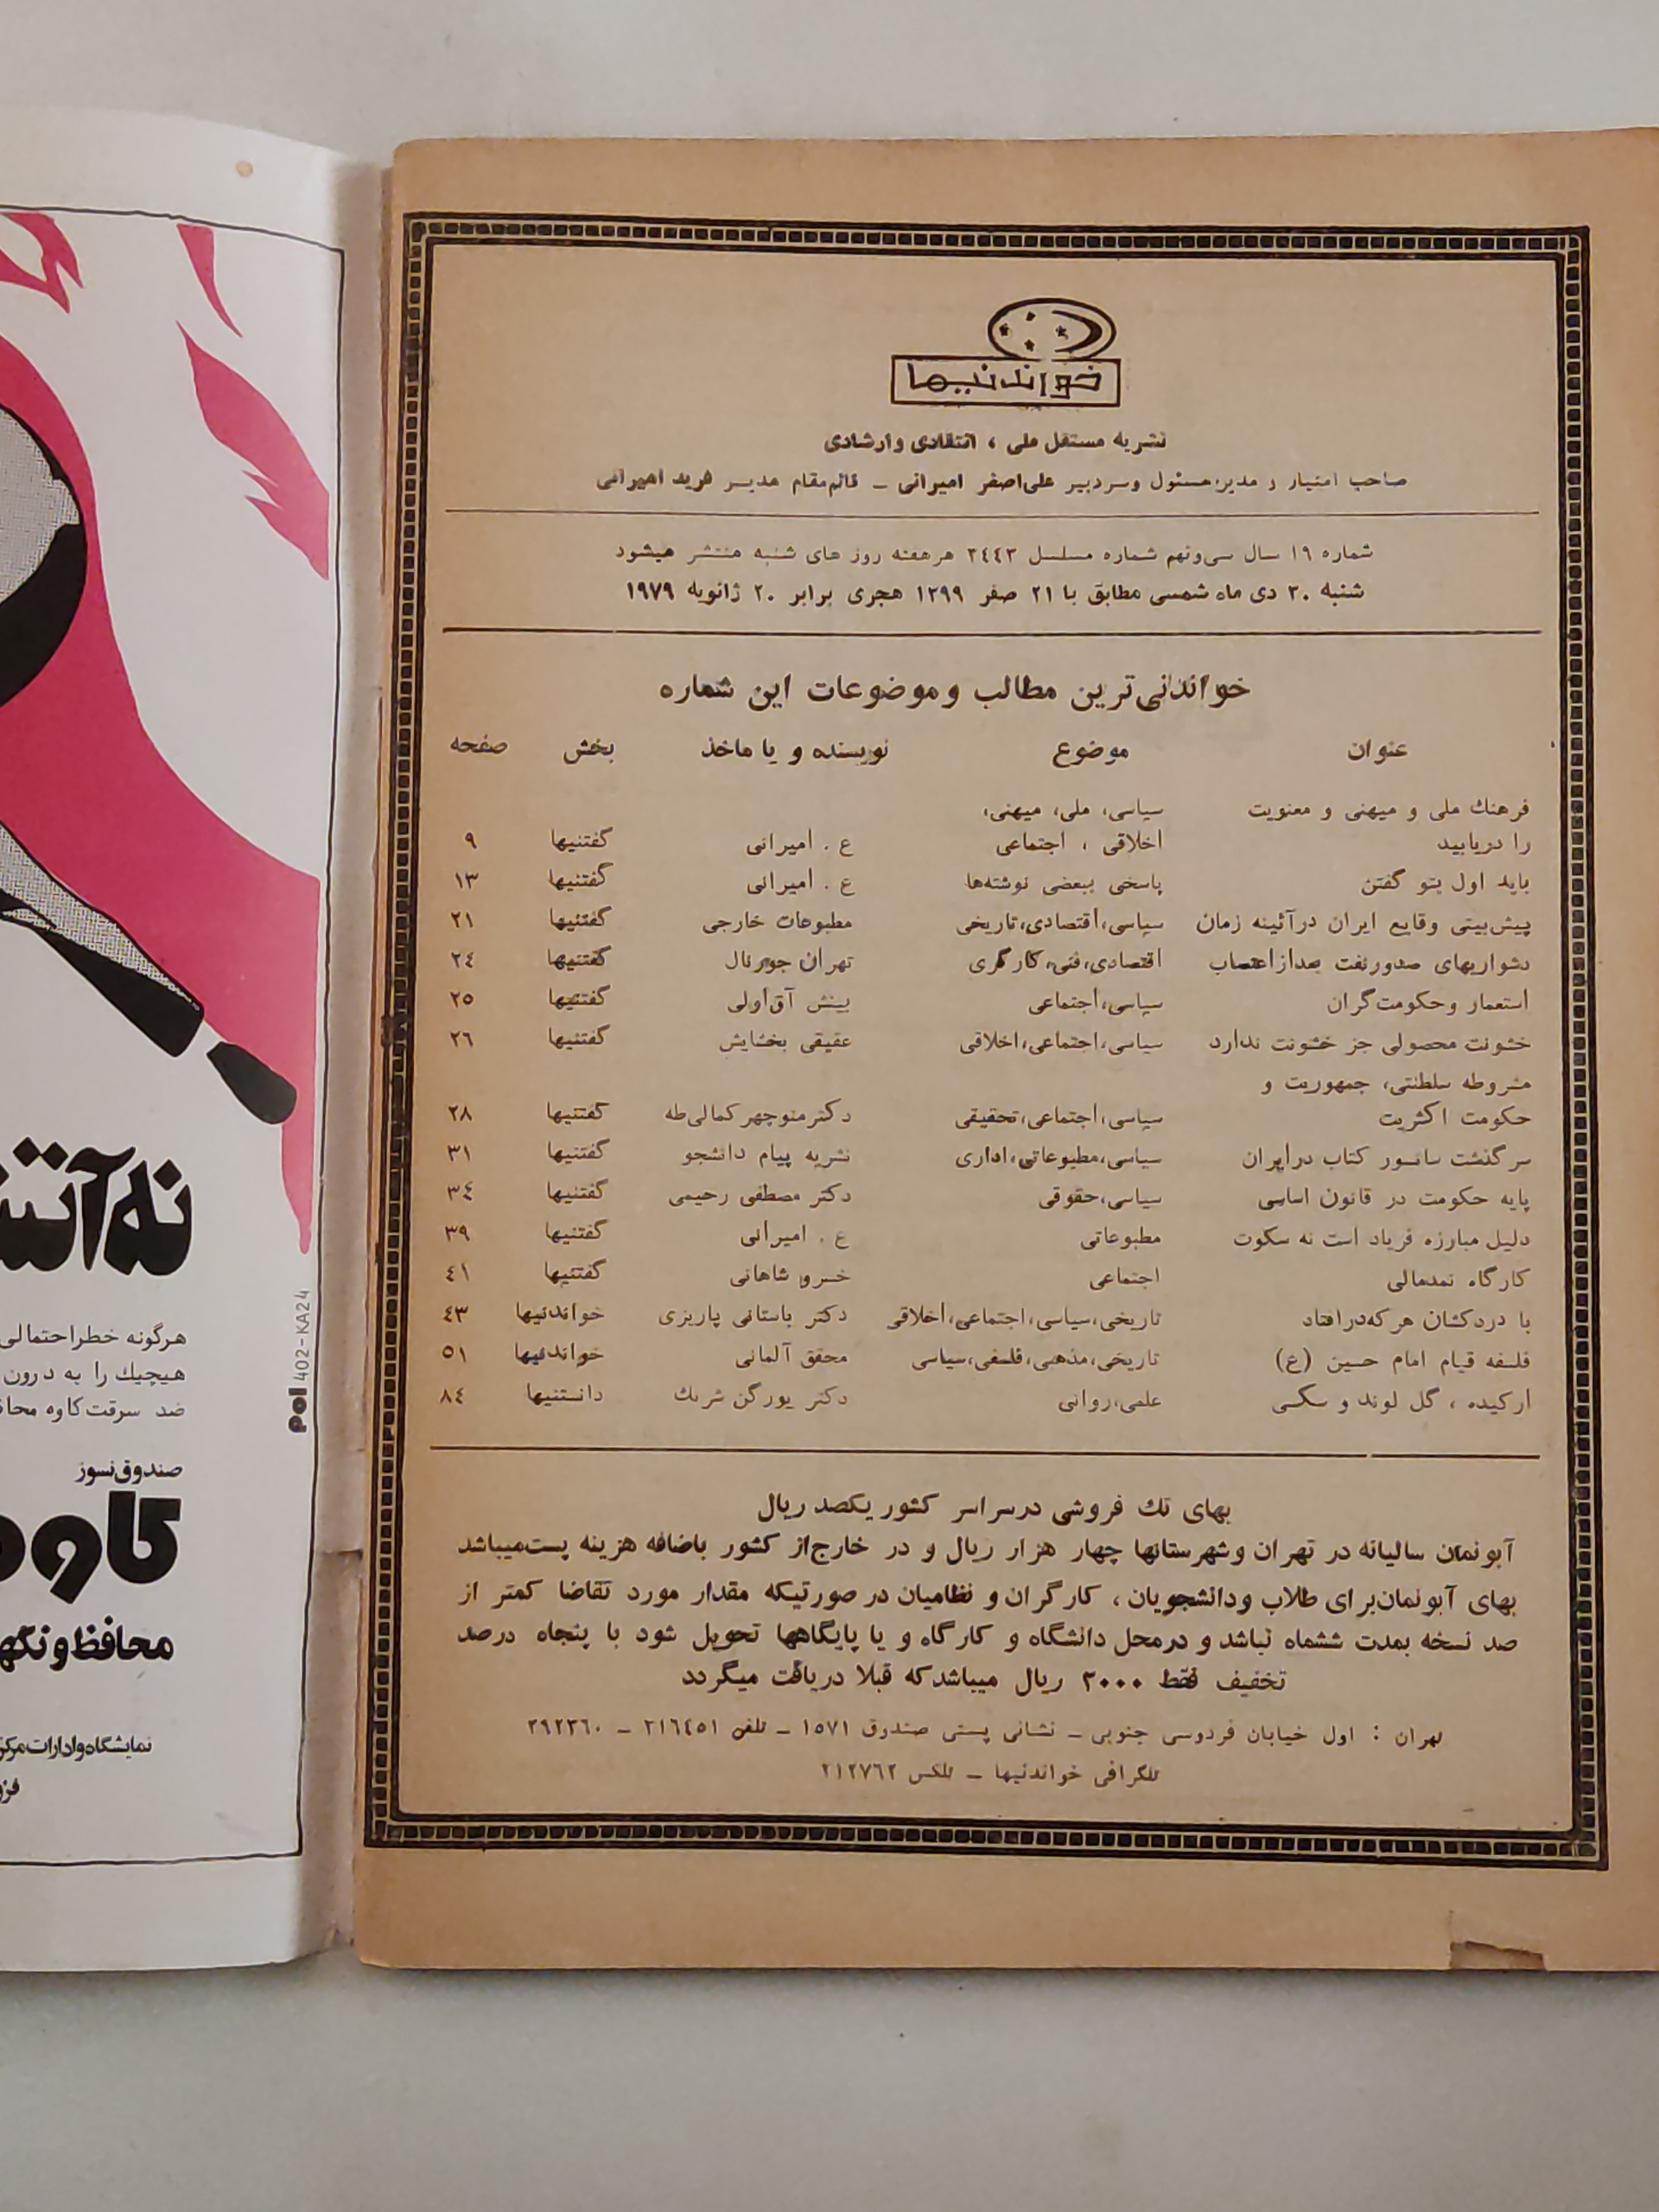 خواندنیها
نشریه مستقل ملی ، انتقادی وارشادی
صاحب امتیاز و مدیرمسئول وسردبیر علی‌اصغر امیرانی ـ قائم‌مقام مدیر فرید امیرانی
شماره ۱۹ سال سی‌ونهم شماره مسلسل ۲٤٤۳ هرهفته روز های شنبه منتشر میشود
شنبه ۳۰ دی ماه شمسی مطابق با ۲۱ صفر ۱۳۹۹ هجری برابر ۲۰ ژانویه ۱۹۷۹
خواندنی‌ترین مطالب وموضوعات این شماره
عنوان موضوع نویسنده و یا ماخذ بخش صفحه
فرهنك ملی و میهنی و معنویت سیاسی، ملی، میهنی،
را دریابید اخلاقی ، اجتماعی ع . امیرانی گفتنیها ۹
باید اول بتو گفتن پاسخی ببعضی نوشته‌ها ع . امیرانی گفتنیها ۱۳
پیش‌بینی وقایع ایران درآئینه زمان سیاسی،اقتصادی،تاریخی مطبوعات خارجی گفتنیها ۲۱
دشواریهای صدورنفت بعدازاعتصاب اقتصادی،فنی،کارگری تهران جورنال گفتنیها ۲٤
استعمار وحکومت‌گران سیاسی،اجتماعی بینش آق‌اولی گفتنیها ۲٥
خشونت محصولی جز خشونت ندارد سیاسی،اجتماعی،اخلاقی عقیقی بخشایش گفتنیها ۲٦
مشروطه سلطنتی، جمهوریت و
حکومت اکثریت سیاسی،اجتماعی،تحقیقی دکترمنوچهرکمالی‌طه گفتنیها ۲۸
سرگذشت سانسور کتاب درایران سیاسی،مطبوعاتی،اداری نشریه پیام دانشجو گفتنیها ۳۱
پایه حکومت در قانون اساسی سیاسی،حقوقی دکتر مصطفی رحیمی گفتنیها ۳٤
دلیل مبارزه فریاد است نه سکوت مطبوعاتی ع . امیرانی گفتنیها ۳۹
کارگاه نمدمالی اجتماعی خسرو شاهانی گفتنیها ٤۱
با دردکشان هرکه‌درافتاد تاریخی،سیاسی،اجتماعی،اخلاقی دکتر باستانی پاریزی خواندنیها ٤۳
فلسفه قیام امام حسین (ع) تاریخی،مذهبی،فلسفی،سیاسی محقق آلمانی خواندنیها ٥۱
ارکیده ، گل لوند و سکسی علمی،روانی دکتر یورگن شریك دانستنیها ۸٤
بهای تك فروشی درسراسر کشور یکصد ریال
آبونمان سالیانه در تهران وشهرستانها چهار هزار ریال و در خارج‌از کشور باضافه هزینه پست‌میباشد
بهای آبونمان‌برای طلاب ودانشجویان ، کارگران و نظامیان درصورتیکه مقدار مورد تقاضا کمتر از
صد نسخه بمدت ششماه نباشد و درمحل دانشگاه و کارگاه و یا پایگاهها تحویل شود با پنجاه درصد
تخفیف فقط ۲۰۰۰ ریال میباشدکه قبلا دریافت میگردد
تهران : اول خیابان فردوسی جنوبی ـ نشانی پستی صندوق ۱٥۷۱ ـ تلفن ۳۱٦٤٥۱ ـ ۳۹۲۳٦۰
تلگرافی خواندنیها ـ تلکس ۲۱۲۷٦۲
نه‌آتش
هرگونه خطراحتمالی
هیچیك را به درون
ضد سرقت‌کاوه
صندوق‌نسوز
کاوه
محافظ‌و
نمایشگاه‌وادارات‌مرکز
pol 402-KA24